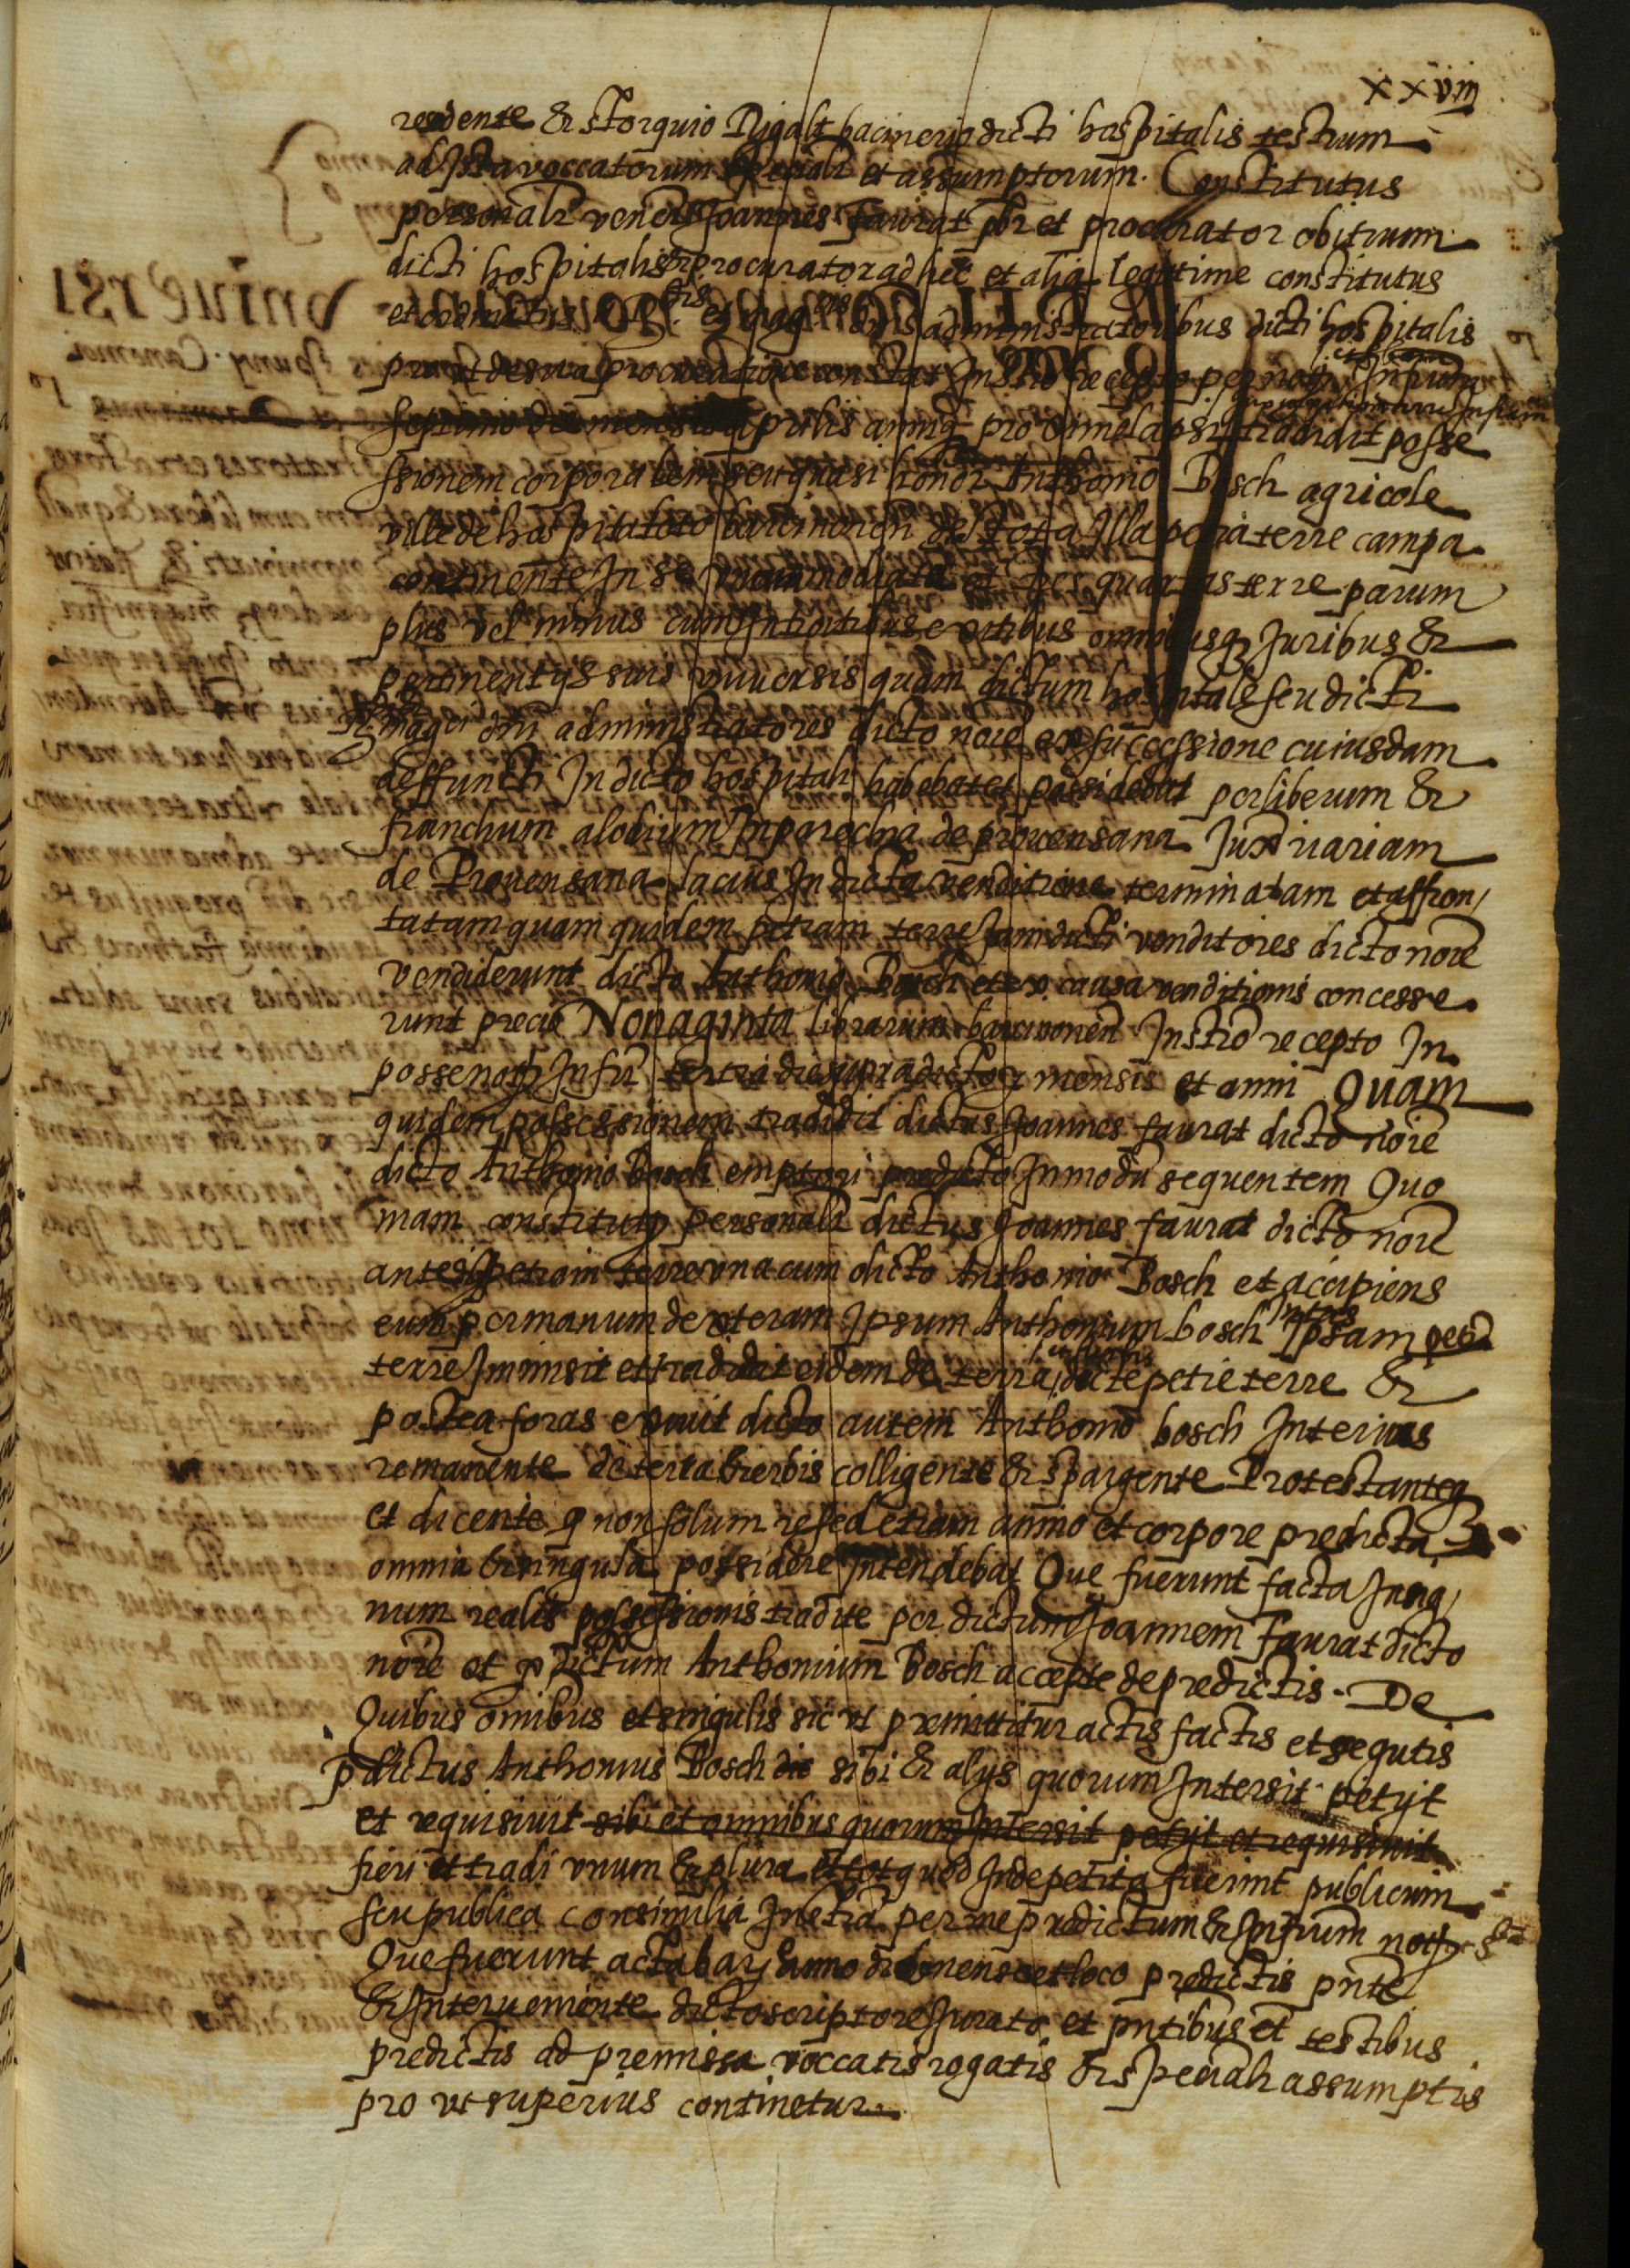 xxviii
residente & storquio Rigalt bacinerio dicti hospitalis testium
ad ista voccatorum speciali et assumptorum. Constitutus
personalr venerls Joannes faurat pbr et procurator obituum
dicti hospitalis procurator ad hec et alia legittime constitutus
et ordinatus et magcis dnis administratoribus dicti hospitalis
prout de sua procuratione constat Instro recepto per not
septimo die mensis aprilis anni pro tradidit posse
ssionem corporalem seu quasi honor Anthonio Bosch agricole
ville de hospitaleto barcinonen de tota illa petia terre campa
continente In se et tres quartas terre parum
plus vel minus cum Introitibus exitibus omnibusq Juribus &
pertinentijs suis vniuersis quam dictum hospitale seu dicti
Rt magci dni administratores dicto noie ex successione cuiusdam
deffuncti In dicto hospitali habebat et possidebat per liberum &
franchum alodium In parechia de prouensana Juxta riariam
de Prouensana lacius In dicta venditione terminatam et affron,
tatam quam quidem petiam terre Jamdicti venditores dicto noie
vendiderunt dicto Anthonio Bosch et ex causa venditionis concesse
runt precio Nonaginta librarum barcinonen Instro recepto In
posse notrij Infri tertia die supradictor mensis et anni Quam
quidem possessionem tradidit dictus Joannes faurat dicto noie
dicto Anthonio Bosch emptori predicto In modu sequentem Quo
niam constitutq personalr dictus Joannes faurat dicto noie
ante dictam petiam terre vna cum dicto Anthonio Bosch et accipiens
eum per manum dexteram Ipsum Anthonium bosch Intus Ipsam petia
terre Inmisit et tradidit eidem de terra et herbis dicte petie terre &
postea foras exiuit dicto autem Anthonio bosch Interius
remanente de terra & herbis colligente & spargente Protestanteq
et dicente q non solum re sed etiam animo et corpore predicta
omnia & singula possidere Intendebat Que fuerunt facta In sig,
num realis possessionis tradite per dictum Joannem Faurat dicto
noie et p dictum Anthonium Bosch accepte de predictis. De
Quibus omibus et singulis sic vt premittitur actis factis et sequtis
p dictus Anthonius Bosch dic sibi & alijs quorum Intersit petijt
et requisiuit sibi et omnibus quorum Intersit petijt et requisiuit
fieri et tradi vnum & plura et tot quod Inde petita fuerint publicum
seu publica consimilia Instra per me predictum & Infrum notrj
Que fuerunt acta bar, anno die mense et loco predictis pnte
& Interueniente dicto scriptore Jurato et pntibus et testibus
predictis ad premissa voccatis rogatis & specialr assumptis
pro vt superius continetur